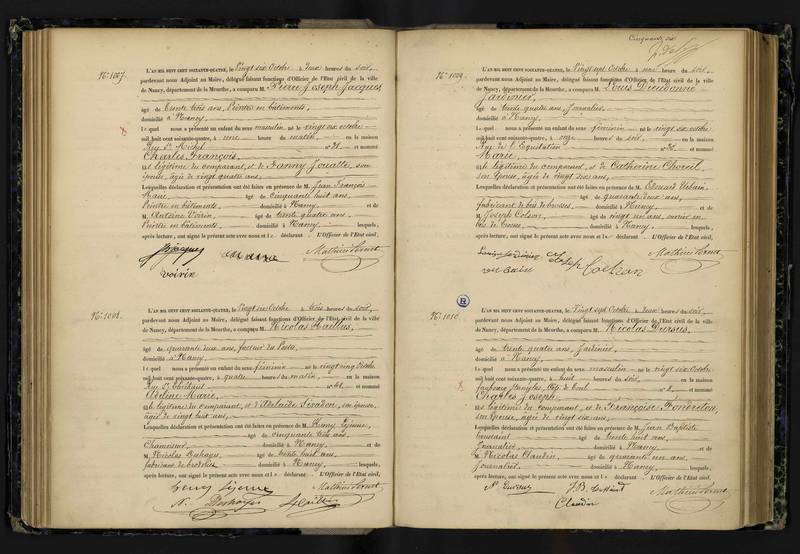 N.º 1007.
L'AN MIL HUIT CENT SOIXANTE-QUATRE, le Vingt six Octobre à deux heures du soir,
pardevant nous Adjoint au Maire, délégué faisant fonctions d'Officier de l'Etat civil de la ville
de Nancy, département de la Meurthe, a comparu M. Pierre Joseph Jacques,
âgé de trente trois ans, Peintre en bâtiments,
domicilié à Nancy,
lequel nous a présenté un enfant du sexe masculin né le vingt six octobre
mil huit cent soixante-quatre, à une heure du matin, en la maison
Rue St Michel n° 28. et nommé
Charles François,
fils légitime du comparant, et de Fanny son
épouse, âgée de vingt quatre ans,
Lesquelles déclaration et présentation ont été faites en présence de M. Jean François
âgé de cinquante huit ans,
Peintre en bâtiments, domicilié à Nancy, et de
M. Antoine Voirin, âgé de trente quatre ans,
Peintre en bâtiments, domicilié à Nancy, lesquels,
après lecture, ont signé le présent acte avec nous et le déclarant. L'Officier de l'Etat civil,
Jacques
voirin
N.º 1008.
L'AN MIL HUIT CENT SOIXANTE-QUATRE, le Vingt six Octobre à trois heures du soir,
pardevant nous Adjoint au Maire, délégué faisant fonctions d'Officier de l'Etat civil de la ville
de Nancy, département de la Meurthe, a comparu M. Nicolas
âgé de quarante deux ans, facteur des Postes,
domicilié à Nancy,
lequel nous a présenté un enfant du sexe féminin née le vingt cinq Octobre
mil huit cent soixante-quatre, à quatre heures du matin, en la maison
Rue St n° et nommé
Adeline Marie,
fille légitime du comparant, et d'Adelaïde son épouse,
âgée de vingt huit ans,
Lesquelles déclaration et présentation ont été faites en présence de M. Henry
âgé de cinquante trois ans,
domicilié à Nancy, et de
M. Nicolas âgé de trente huit ans,
fabricant de domicilié à Nancy, lesquels,
après lecture, ont signé le présent acte avec nous et le déclarant. L'Officier de l'Etat civil,
Henry
N.
Cinquante six
N.º 1009.
L'AN MIL HUIT CENT SOIXANTE-QUATRE, le Vingt sept Octobre à une heure du soir,
pardevant nous Adjoint au Maire, délégué faisant fonctions d'Officier de l'Etat civil de la ville
de Nancy, département de la Meurthe, a comparu M. Louis Dieudonné
Jardinier,
âgé de trente quatre ans, Journalier,
domicilié à Nancy,
lequel nous a présenté un enfant du sexe féminin née le vingt six octobre
mil huit cent soixante-quatre, à onze heures du soir, en la maison
Rue de l'Equitation n° 26. et nommé
Marie,
fille légitime du comparant, et de Catherine
son épouse, âgée de vingt six ans,
Lesquelles déclaration et présentation ont été faites en présence de M. Edouard Urbain,
âgé de quarante deux ans,
fabricant de bois de brosses, domicilié à Nancy, et de
M. Joseph Colson, âgé de vingt un ans, ouvrier en
bois de brosses, domicilié à Nancy, lesquels,
après lecture, ont signé le présent acte avec nous et le déclarant. L'Officier de l'Etat civil,
urbain
N.º 1010.
L'AN MIL HUIT CENT SOIXANTE-QUATRE, le Vingt sept Octobre à deux heures du soir,
pardevant nous Adjoint au Maire, délégué faisant fonctions d'Officier de l'Etat civil de la ville
de Nancy, département de la Meurthe, a comparu M. Nicolas
âgé de trente quatre ans, Jardinier,
domicilié à Nancy,
lequel nous a présenté un enfant du sexe masculin né le vingt six Octobre
mil huit cent soixante-quatre, à huit heures du soir, en la maison
faubourg Stanislas, n° 2. et nommé
Charles Joseph,
fils légitime du comparant, et de Françoise
son épouse, âgée de vingt six ans,
Lesquelles déclaration et présentation ont été faites en présence de M. Jean Baptiste
Toussaint âgé de trente huit ans,
Journalier domicilié à Nancy, et de
M. Nicolas Claudin, âgé de quarante un ans,
Journalier, domicilié à Nancy, lesquels,
après lecture, ont signé le présent acte avec nous et le déclarant. L'Officier de l'Etat civil,
Claudin